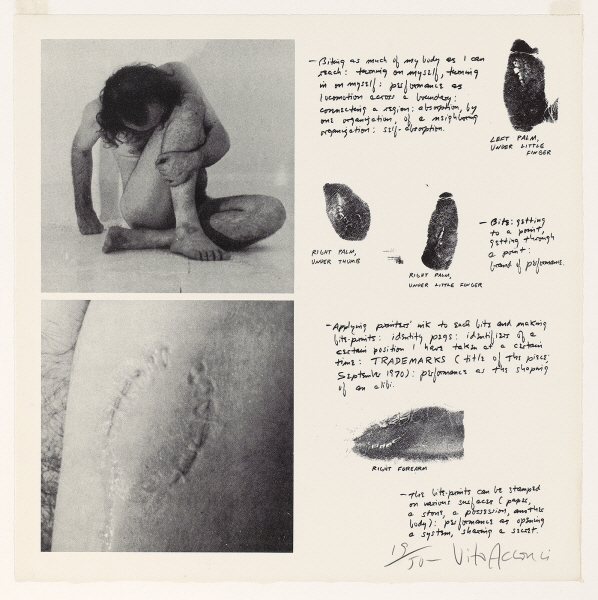 – Biting as much of my body as I can
reach: turning on myself, turning
in on myself: performance as
locomotion across a boundary:
connecting a region: absorption, by
one organization, of a neighboring
organization: self-absorption.
LEFT PALM,
UNDER LITTLE
FINGER
– Bite: getting
to a point,
getting through
a point:
brand of performance.
RIGHT PALM,
UNDER THUMB
RIGHT PALM,
UNDER LITTLE FINGER
– Applying printers' ink to each bite and making
bite-prints: identity pegs: identifiers of a
certain position I have taken at a certain
time: TRADEMARKS (title of the piece;
September 1970): performance as the shaping
of an alibi.
RIGHT FOREARM
– The bite-prints can be stamped
on various surfaces (paper,
a stone, a possession, another
body): performance as opening
a system, sharing a secret.
19/50 – Vito Acconci